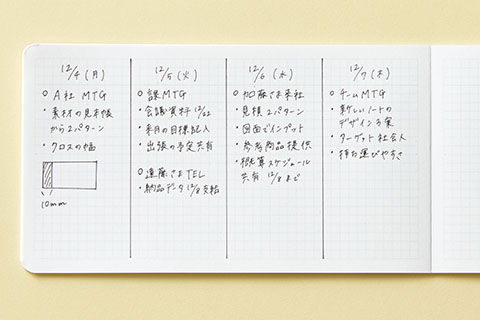 12/4 (月)
○ A社 MTG
・素材の見本帳
から2パターン
・クロスの幅
10mm
12/5 (火)
○ 課MTG
・会議資料 12/22
・来月の目標記入
・出張の予定共有
○ 遠藤さまTEL
・納品データ 12/8 支給
12/6 (水)
○ 加藤さま来社
・見積 2パターン
・図面でインプット
・参考商品提供
・概算スケジュール
共有 12/8 まで
12/7 (木)
○ チームMTG
・新しいノートの
デザイン3案
・ターゲット社会人
・持ち運びやすさ